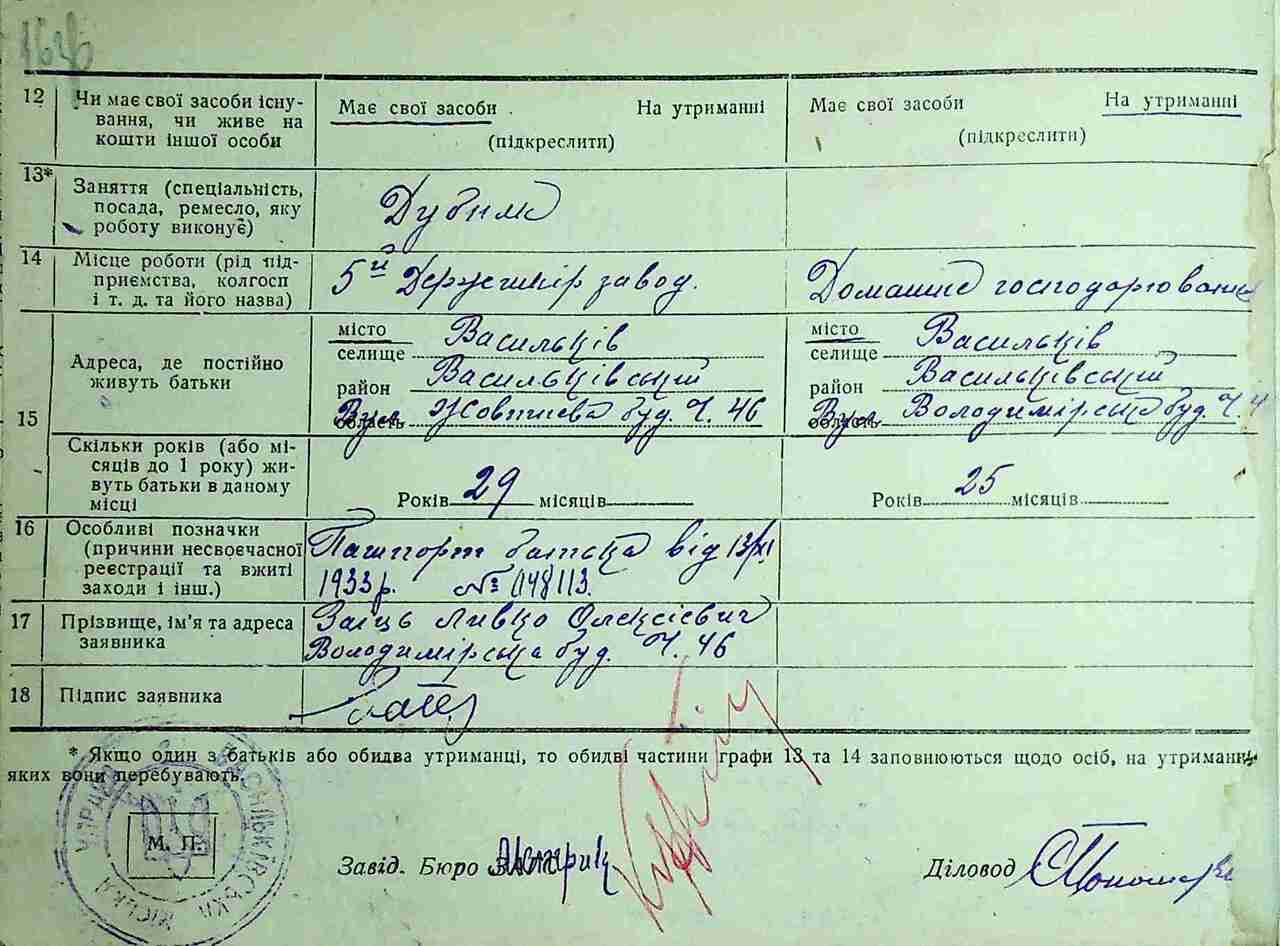 12 Чи має свої засоби існу-
вання, чи живе на
кошти іншої особи
Має свої засоби На утриманні
(підкреслити)
Має свої засоби На утриманні
(підкреслити)
13* Заняття (спеціальність,
посада, ремесло, яку
роботу виконує)
14 Місце роботи (рід під-
приємства, колгосп
і т. д. та його назва)
5й завод.
Домашнє господарювання
15 Адреса, де постійно
живуть батьки
місто Васильків
селище
район Васильківський
Вул. Жовтнева буд. Ч. 46
область
місто Васильків
селище
район Васильківський
Вул. Володимірська буд. Ч. 4
область
Скільки років (або мі-
сяців до 1 року) жи-
вуть батьки в даному
місці
Років 29 місяців
Років 25 місяців
16 Особливі позначки
(причини несвоєчасної
реєстрації та вжиті
заходи і інш.)
Пашпорт батька від 13/XI
1933 р. № 048113.
17 Прізвище, ім'я та адреса
заявника
Заєць Левко Олексієвич
Володимірська буд. Ч. 46
18 Підпис заявника
* Якщо один з батьків або обидва утриманці, то обидві частини графи 13 та 14 заповнюються щодо осіб, на утриманні
яких вони перебувають.
М. П.
УПРАВА ВАСИЛЬКІВСЬКА МІСЬКА
Завід. Бюро ЗАГС
Діловод